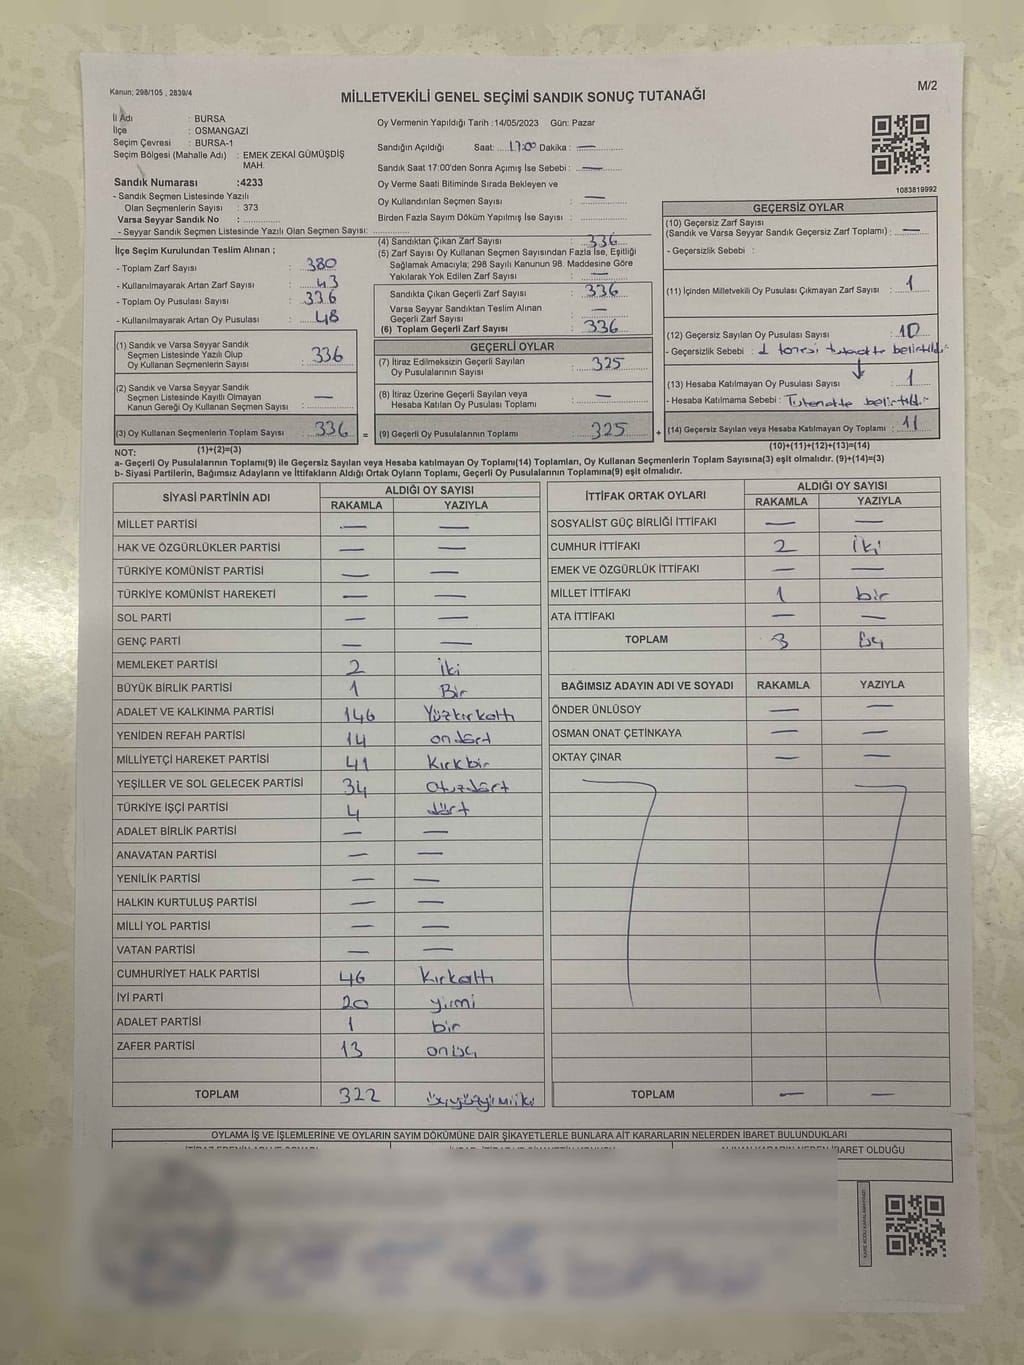 Kanun, 298/105 , 2839/4
M/2
MİLLETVEKİLİ GENEL SEÇİMİ SANDIK SONUÇ TUTANAĞI
İl Adı : BURSA
İlçe : OSMANGAZİ
Seçim Çevresi : BURSA-1
Seçim Bölgesi (Mahalle Adı) : EMEK ZEKAİ GÜMÜŞDİŞ
MAH.
Sandık Numarası :4233
- Sandık Seçmen Listesinde Yazılı
Olan Seçmenlerin Sayısı : 373
Varsa Seyyar Sandık No : ..............
- Seyyar Sandık Seçmen Listesinde Yazılı Olan Seçmen Sayısı: ..............
Oy Vermenin Yapıldığı Tarih :14/05/2023 Gün: Pazar
Sandığın Açıldığı Saat: ....17:00 Dakika : —
Sandık Saat 17:00'den Sonra Açımış İse Sebebi : —
Oy Verme Saati Bitiminde Sırada Bekleyen ve
Oy Kullandırılan Seçmen Sayısı : —
Birden Fazla Sayım Döküm Yapılmış İse Sayısı : ..............
1083819992
İlçe Seçim Kurulundan Teslim Alınan ;
- Toplam Zarf Sayısı : 380
- Kullanılmayarak Artan Zarf Sayısı : 43
- Toplam Oy Pusulası Sayısı : 336
- Kullanılmayarak Artan Oy Pusulası : 48
(1) Sandık ve Varsa Seyyar Sandık
Seçmen Listesinde Yazılı Olup
Oy Kullanan Seçmen Sayısı : 336
(2) Sandık ve Varsa Seyyar Sandık
Seçmen Listesinde Kayıtlı Olmayan
Kanun Gereği Oy Kullanan Seçmen Sayısı : —
(3) Oy Kullanan Seçmenlerin Toplam Sayısı : 336 =
(4) Sandıktan Çıkan Zarf Sayısı : 336
(5) Zarf Sayısı Oy Kullanan Seçmen Sayısından Fazla İse, Eşitliği
Sağlamak Amacıyla; 298 Sayılı Kanunun 98. Maddesine Göre
Yakılarak Yok Edilen Zarf Sayısı : —
Sandıkta Çıkan Geçerli Zarf Sayısı : 336
Varsa Seyyar Sandıktan Teslim Alınan
Geçerli Zarf Sayısı : —
(6) Toplam Geçerli Zarf Sayısı : 336
GEÇERLİ OYLAR
(7) İtiraz Edilmeksizin Geçerli Sayılan
Oy Pusulalarının Sayısı : 325
(8) İtiraz Üzerine Geçerli Sayılan veya
Hesaba Katılan Oy Pusulası Toplamı : —
(9) Geçerli Oy Pusulalarının Toplamı : 325 +
GEÇERSİZ OYLAR
(10) Geçersiz Zarf Sayısı
(Sandık ve Varsa Seyyar Sandık Geçersiz Zarf Toplamı) : —
- Geçersizlik Sebebi :
(11) İçinden Milletvekili Oy Pusulası Çıkmayan Zarf Sayısı : 1
(12) Geçersiz Sayılan Oy Pusulası Sayısı : 10
- Geçersizlik Sebebi : 1 tanesi tutanakta belirtildi
(13) Hesaba Katılmayan Oy Pusulası Sayısı : 1
- Hesaba Katılmama Sebebi : Tutanakta belirtildi
(14) Geçersiz Sayılan veya Hesaba Katılmayan Oy Toplamı : 11
(1)+(2)=(3)
(10)+(11)+(12)+(13)=(14)
NOT:
a- Geçerli Oy Pusulalarının Toplamı(9) ile Geçersiz Sayılan veya Hesaba katılmayan Oy Toplamı(14) Toplamları, Oy Kullanan Seçmenlerin Toplam Sayısına(3) eşit olmalıdır. (9)+(14)=(3)
b- Siyasi Partilerin, Bağımsız Adayların ve İttifakların Aldığı Ortak Oyların Toplamı, Geçerli Oy Pusulalarının Toplamına(9) eşit olmalıdır.
SİYASİ PARTİNİN ADI ALDIĞI OY SAYISI
RAKAMLA YAZIYLA
MİLLET PARTİSİ — —
HAK VE ÖZGÜRLÜKLER PARTİSİ — —
TÜRKİYE KOMÜNİST PARTİSİ — —
TÜRKİYE KOMÜNİST HAREKETİ — —
SOL PARTİ — —
GENÇ PARTİ — —
MEMLEKET PARTİSİ 2 iki
BÜYÜK BİRLİK PARTİSİ 1 Bir
ADALET VE KALKINMA PARTİSİ 146 Yüzkırkaltı
YENİDEN REFAH PARTİSİ 14 ondört
MİLLİYETÇİ HAREKET PARTİSİ 41 Kırkbir
YEŞİLLER VE SOL GELECEK PARTİSİ 34 otuzdört
TÜRKİYE İŞÇİ PARTİSİ 4 dört
ADALET BİRLİK PARTİSİ — —
ANAVATAN PARTİSİ — —
YENİLİK PARTİSİ — —
HALKIN KURTULUŞ PARTİSİ — —
MİLLİ YOL PARTİSİ — —
VATAN PARTİSİ — —
CUMHURİYET HALK PARTİSİ 46 Kırkaltı
İYİ PARTİ 20 yirmi
ADALET PARTİSİ 1 bir
ZAFER PARTİSİ 13 onüç
TOPLAM 322 üçyüzyirmiiki
İTTİFAK ORTAK OYLARI ALDIĞI OY SAYISI
RAKAMLA YAZIYLA
SOSYALİST GÜÇ BİRLİĞİ İTTİFAKI — —
CUMHUR İTTİFAKI 2 iki
EMEK VE ÖZGÜRLÜK İTTİFAKI — —
MİLLET İTTİFAKI 1 bir
ATA İTTİFAKI — —
TOPLAM 3 üç
BAĞIMSIZ ADAYIN ADI VE SOYADI RAKAMLA YAZIYLA
ÖNDER ÜNLÜSOY — —
OSMAN ONAT ÇETİNKAYA — —
OKTAY ÇINAR — —
TOPLAM — —
OYLAMA İŞ VE İŞLEMLERİNE VE OYLARIN SAYIM DÖKÜMÜNE DAİR ŞİKAYETLERLE BUNLARA AİT KARARLARIN NELERDEN İBARET BULUNDUKLARI
İBARET OLDUĞU